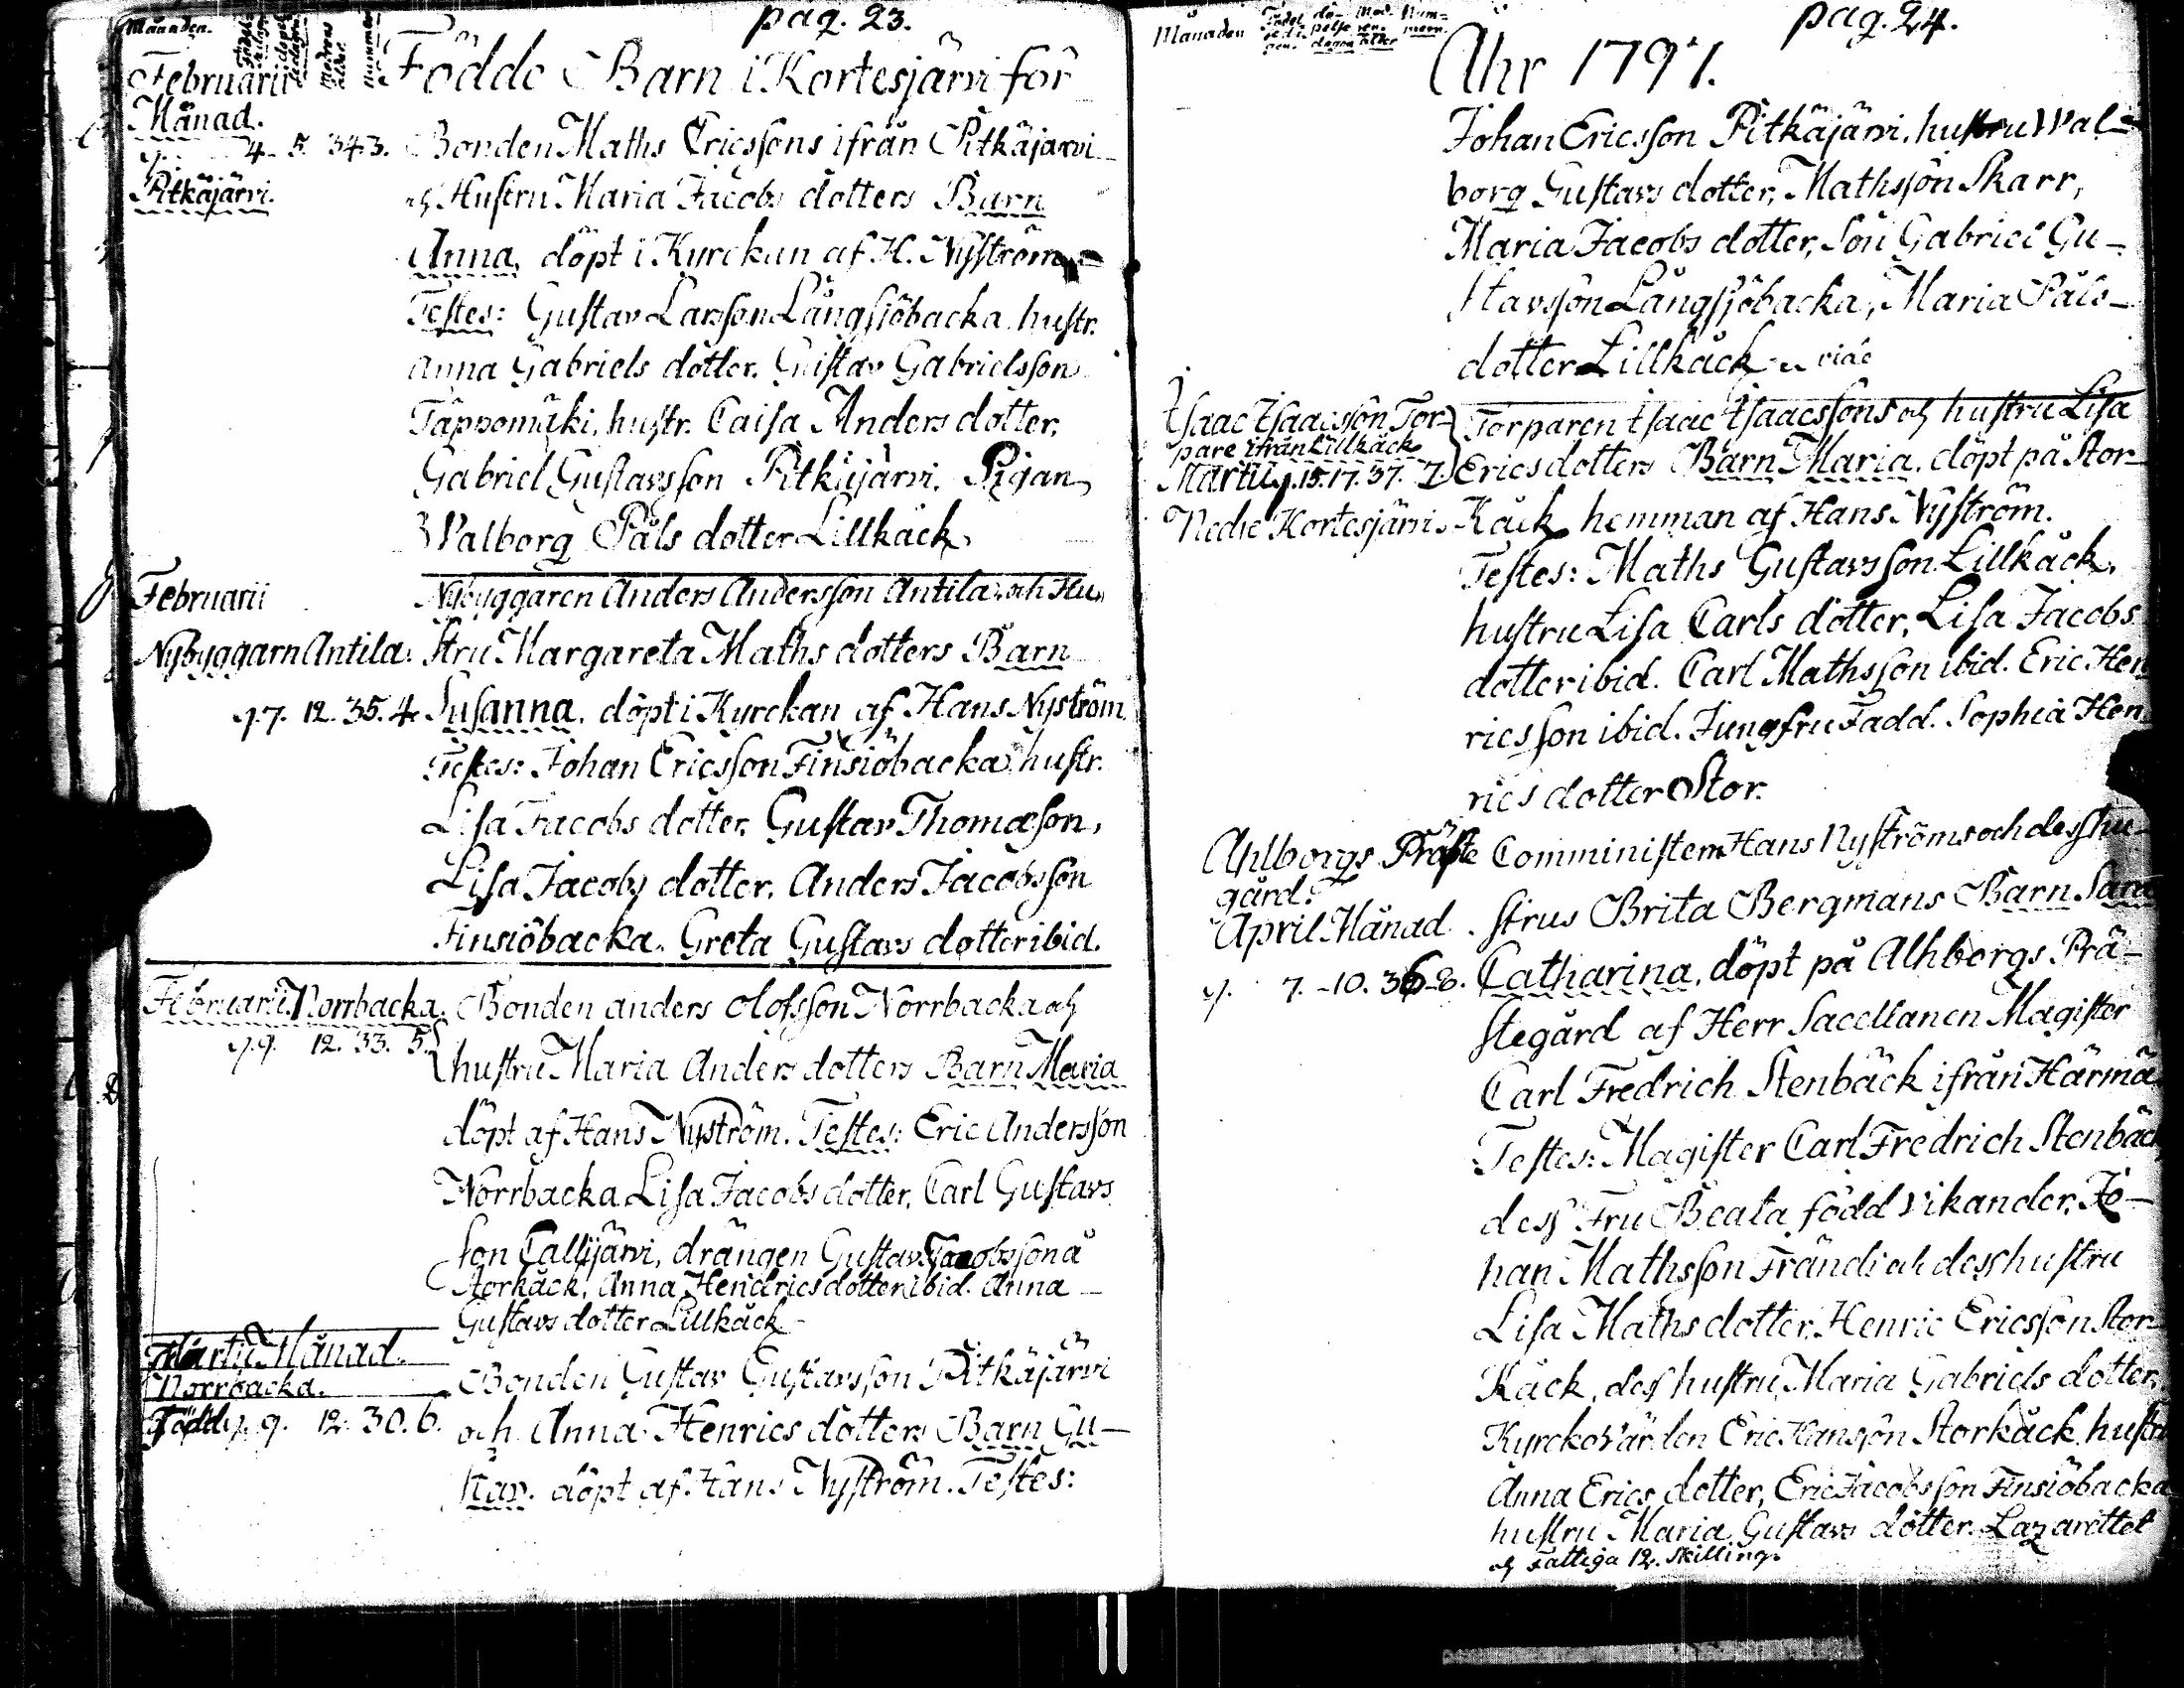 pag. 23.
Månaden.
Födde Barn i Kortesjärvi för
Februarii
Månad.
4. 5. 34. 3.
Pitkäjärvi.
Bonden Maths Ericssons ifrån Pitkäjärvi
och Hustru Maria Jacobs dotters Barn
Anna, döpt i Kyrckan af H. Nyström
Testes: Gustav Larsson Långsjöbacka, hustr.
Anna Gabriels dotter. Gustav Gabrielsson
Täppomäki, hustr. Caisa Anders dotter,
Gabriel Gustavsson Pitkäjärvi. Pigan
Valborg Påls dotter Lillkäck.
Februarii
Nybyggarn Antila.
7. 12. 35. 4.
Nybyggaren Anders Andersson Antila och Hu
stru Margareta Maths dotters Barn
Susanna, döpt i Kyrckan af Hans Nyström
Testes: Johan Ericsson Finsiöbacka hustr.
Lisa Jacobs dotter. Gustav Thomæson,
Lisa Jacobs dotter. Anders Jacobsson
Finsiöbacka. Greta Gustavs dotter ibid.
Februarii. Norrbacka.
9. 12. 33. 5.
Bonden Anders Olofsson Norrbacka och
hustru Maria Anders dotters Barn Maria
döpt af Hans Nyström. Testes: Eric Andersson
Norrbacka Lisa Jacobs dotter, Carl Gustavs
son Callijärvi, drängen Gustav Jacobsson å
Storkäck, Anna Hendricsdotter ibid. Anna
Gustavs dotter Lillkäck
Martii Månad.
Norrbacka.
Född 9. 12. 30. 6.
Bonden Gustav Gustavsson Pitkäjärvi
och Anna Henrics dotters Barn Gu-
stav. döpt af Hans Nyström. Testes:
pag. 24.
Månaden
Åhr 1797.
Johan Ericsson Pitkäjärvi, hustru Wal-
borg Gustavs dotter, Mathsson Skarr,
Maria Jacobs dotter, Son Gabriel Gu-
stavsson Långsjöbacka, Maria Påls-
dotter Lillkäck
Isaac Isaacsson Tor-
pare ifrån Lillkäck
Martii 15. 17. 37. 7.
Nedre Kortesjärvi.
Torparen Isaac Isaacssons och hustru Lisa
Ericsdotters Barn Maria, döpt på Stor-
Käck hemman af Hans Nyström.
Testes: Maths Gustavsson Lillkäck,
hustru Lisa Carls dotter, Lisa Jacobs
dotter ibid. Carl Mathsson ibid. Eric Hen
ricsson ibid. Jungfru Fadd. Sophia Hen
rics dotter Stor.
Ahlborgs Präste
gård.
April Månad.
7. 10. 36. 8.
Comministern Hans Nyströms och dess hu-
strus Brita Bergmans Barn Sara
Catharina, döpt på Alhborgs Prä-
stegård af Herr Sacellanen Magister
Carl Fredrich Stenbäck ifrån Härmä
Testes: Magister Carl Fredrich Stenbäck
dess Fru Beata född Vikander, Jo-
han Mathsson Frändi och dess hustru
Lisa Maths dotter, Henric Ericsson Stor-
Käck, dess hustru Maria Gabriels dotter,
Kyrckovärden Eric Hansson Storkäck hustru
Anna Erics dotter, Eric Jacobsson Finsiöbacka
hustru Maria Gustavs dotter. Lazarettet
och Fattiga 12. Skilling.